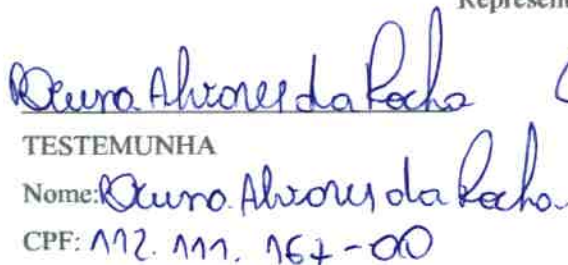 Represent
Bruna Alvares da Rocha
TESTEMUNHA
Nome: Bruna Alvares da Rocha
CPF: 112.111.167-00